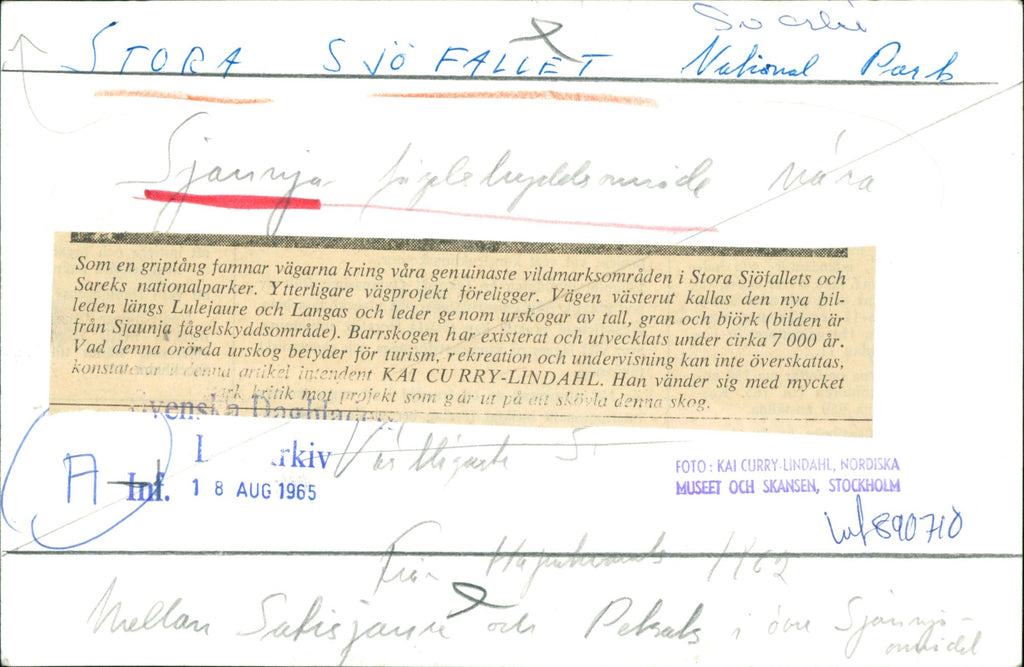 STORA SJÖ FALLET National Park
Sjaunja fågelskyddsområde nära
Som en griptång famnar vägarna kring våra genuinaste vildmarksområden i Stora Sjöfallets och
Sareks nationalparker. Ytterligare vägprojekt föreligger. Vägen västerut kallas den nya bil-
leden längs Lulejaure och Langas och leder genom urskogar av tall, gran och björk (bilden är
från Sjaunja fågelskyddsområde). Barrskogen har existerat och utvecklats under cirka 7 000 år.
Vad denna orörda urskog betyder för turism, rekreation och undervisning kan inte överskattas,
konstaterar i denna artikel intendent KAI CURRY-LINDAHL. Han vänder sig med mycket
kritik mot projekt som går ut på att skövla denna skog.
Svenska Dagbladet
A
Inf. 18 AUG 1965
FOTO: KAI CURRY-LINDAHL, NORDISKA
MUSEET OCH SKANSEN, STOCKHOLM
Inf 890710
Från 1962
Mellan och i övre Sjaunja-
området